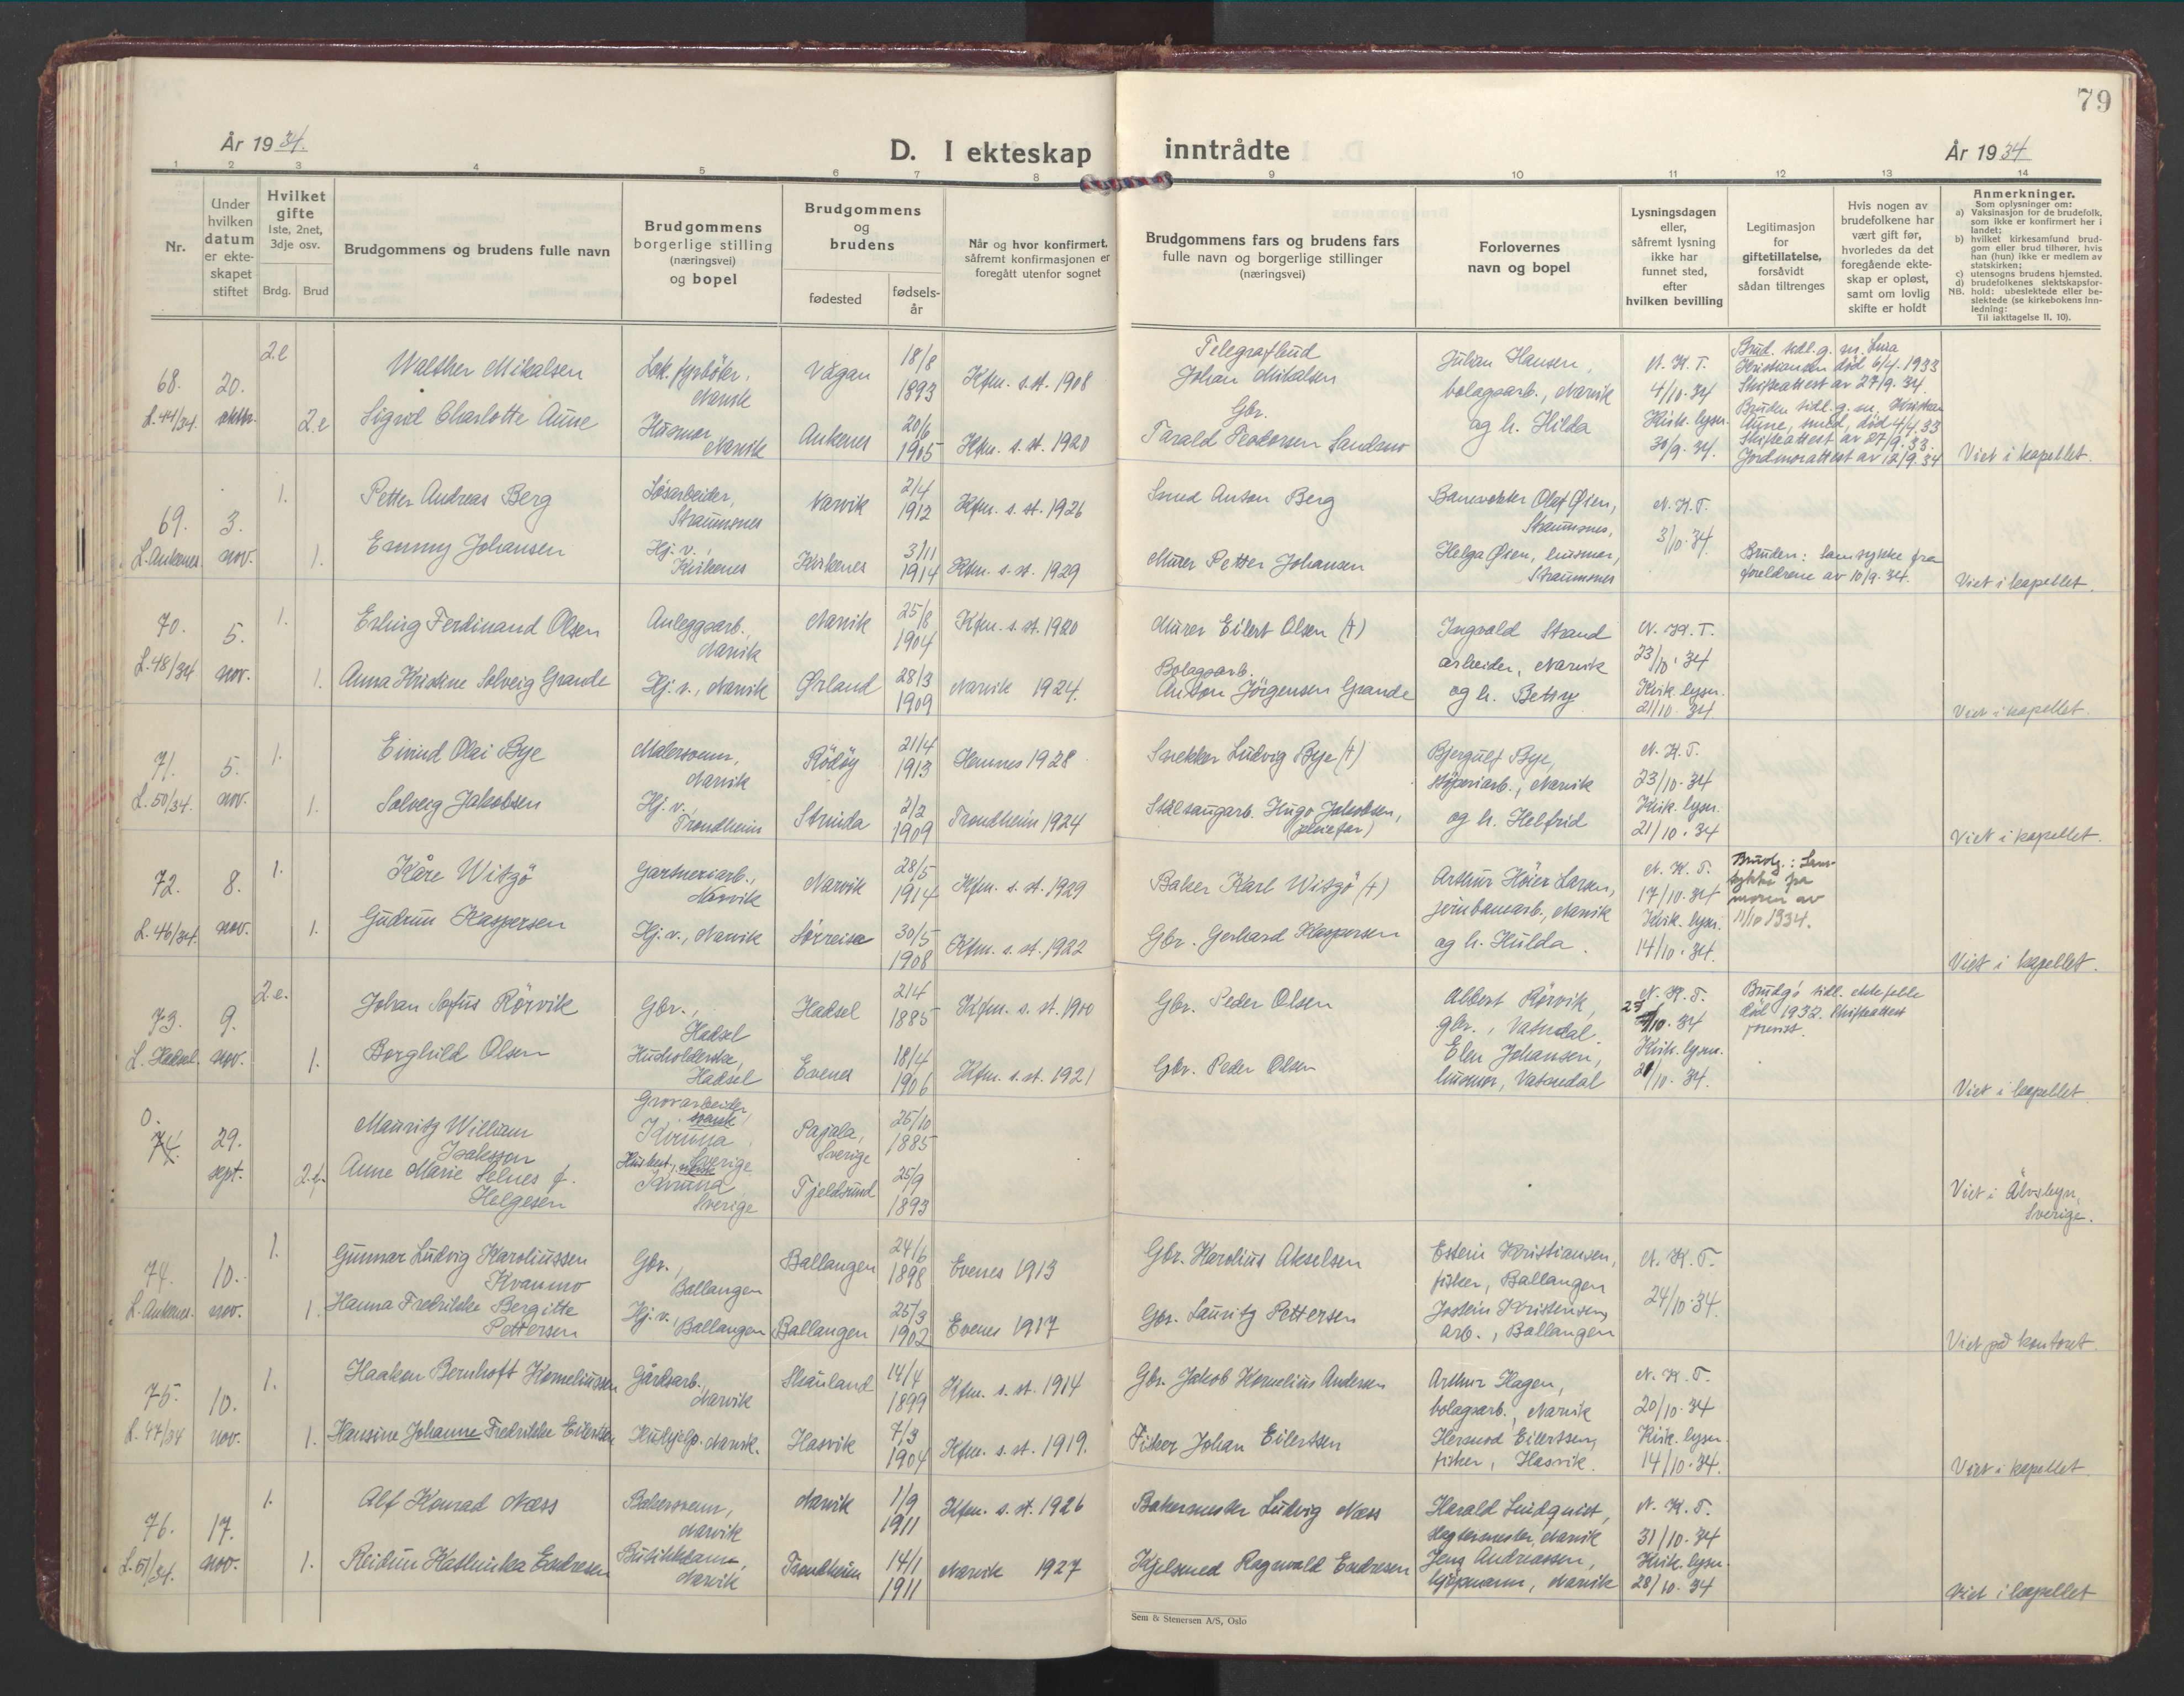 79
År 1934.
D. I ekteskap inntrådte
År 1934
1 2 3 4 5 6 7 8 9 10 11 12 13 14
Nr.
Under hvilken datum er ekteskapet stiftet
Hvilket gifte 1ste, 2net, 3dje osv.
Brdg. Brud
Brudgommens og brudens fulle navn
Brudgommens borgerlige stilling (næringsvei) og bopel
Brudgommens og brudens
fødested
fødselsår
Når og hvor konfirmert, såfremt konfirmasjonen er foregått utenfor sognet
Brudgommens fars og brudens fars fulle navn og borgerlige stillinger (næringsvei)
Forlovernes navn og bopel
Lysningsdagen eller, såfremt lysning ikke har funnet sted, efter hvilken bevilling
Legitimasjon for giftetillatelse, forsåvidt sådan tiltrenges
Hvis nogen av brudefolkene har vært gift før, hvorledes da det foregående ekteskap er opløst, samt om lovlig skifte er holdt
Anmerkninger.
Som oplysninger om:
a) Vaksinasjon for de brudefolk, som ikke er konfirmert her i landet;
b) hvilket kirkesamfund brudgom eller brud tilhører, hvis han (hun) ikke er medlem av statskirken;
c) utensogns brudens hjemsted.
d) brudefolkenes slektskapsforhold: ubeslektede eller beslektede (se kirkebokens innledning:
NB. Til iakttagelse II, 10).
68. 20. 2.e Walther Mikalsen Lok. fyrbøter, Narvik Vågan 18/8 1893 Kfm. s. st. 1908 Telegrafbud Johan Mikalsen Julian Hansen, bolagsarb., Narvik N. K. T. 4/10.34 Brud. tidl. g. m. død 6/4.1933 Skifteattest av 27/9.34.
L.44/34. oktbr. 2.e Sigrid Charlotte Aune Husmor Narvik Ankenes 20/6 1905 Kfm. s. st. 1920 Gbr. Tarald Teodorsen Sandmo og h. Hilda Kirk. lysn. 30/9.34. Bruden tidl. g. m. Kristian Aune, smed, død 4/4.33 Skifteattest av 27/9.33. Jordmorattest av 12/9.34 Viet i kapellet.
69. 3. 1. Petter Andreas Berg Løsarbeider, Straumsnes Narvik 2/4 1912 Kfm. s. st. 1926 Smed Anton Berg Banevokter Olaf Øien, Straumsnes, N. K. T. 3/10.34.
L. Ankenes nov. 1. Emmy Johansen Hj. v., Kvikenes Kvikenes 3/11 1914 Kfm. s. st. 1929 Murer Petter Johansen Helga Øien, husmor, Straumsnes Bruden: Samtykke fra foreldrene av 10/9.34. Viet i kapellet.
70. 5. 1. Erling Ferdinand Olsen Anleggsarb., Narvik Narvik 25/8 1904 Kfm. s. st. 1920 Murer Eilert Olsen (†) Ingvald Strand arbeider, Narvik N. K. T. 23/10.34
L.48/34 nov. 1. Anna Kristine Solveig Grande Hj. v., Narvik Ørland 28/3 1909 Narvik 1924. Bolagsarb. Anton Jörgensen Grande og h. Betsy Kirk. lysn. 21/10.34. Viet i kapellet.
71. 5. 1. Eivind Olai Bye Malersvenn, Narvik Rödöy 21/4 1913 Hemnes 1928 Snekker Ludvig Bye (†) Bjergulf Bye, Narvik N. K. T. 23/10.34
L.50/34. nov. 1. Solveig Jakobsen Hj. v., Trondheim Strinda 2/2 1909 Trondheim 1924 Hugo Jakobsen, (pleiefar) og h. Helfrid Kirk. lysn. 21/10.34 Viet i kapellet.
72. 8. 1. Kåre Witsö Gartneriarb., Narvik Narvik 28/5 1914 Kfm. s. st. 1929 Baker Karl Witsö (†) Arthur Höier Larsen, jernbanearb., Narvik N. K. T. 17/10.34 Brudg.: Samtykke fra moren av 11/10 1934.
L.46/34. nov. 1. Gudrun Kaspersen Hj. v., Narvik Sörreisa 30/5 1908 Kfm. s. st. 1922 Gbr. Gerhard Kaspersen og h. Hulda. Kirk. lysn. 14/10.34. Viet i kapellet.
73. 9. 2.e. Johan Sofus Rörvik Gbr., Hadsel Hadsel 21/4 1885 Kfm. s. st. 1900 Gbr. Peder Olsen Albert Rörvik, gbr., Vatndal. N. K. T. 23/10.34 Brudg's tidl. ektefelle död 1932. Skifteattest forevist.
L. Hadsel. nov. 1. Borghild Olsen Husholderske, Hadsel Evenes 18/4 1906 Kfm. s. st. 1921 Gbr. Peder Olsen Elen Johansen, husmor, Vatndal Kirk. lysn. 21/10.34. Viet i kapellet.
0. 74. 29. Mauritz William Isaksson Gruvarbeider, svensk, Kiruna Sverige Pajala, Sverige 25/10 1885
sept. 2.g. Anne Marie Selnes f. Helgesen norsk Kiruna Sverige Tjeldsund 25/9 1893 Viet i Älvsbyn, Sverige.
74. 10. 1. Gunnar Ludvig Karoliussen Kvanmo Gbr., Ballangen Ballangen 24/6 1898 Evenes 1913 Gbr. Karolius Akselsen Kristiansen, fisker, Ballangen N. K. T. 24/10.34.
L. Ankenes. nov. 1. Hanna Fredrikke Bergitte Pettersen Hj. v., Ballangen Ballangen 25/3 1902 Evenes 1917 Gbr. Lauritz Pettersen Jostein Kristensen, arb., Ballangen Viet på kontoret.
75. 10. 1. Haakon Bernhoft Korneliussen Gårdsarb., Narvik Skånland 14/4 1899 Kfm. s. st. 1914 Gbr. Jakob Kornelius Andersen Arthur Hagen, bolagsarb., Narvik N. K. T. 20/10.34
L.47/34 nov. 1. Hansine Johanne Fredrikke Eilertsen Narvik. Hasvik 7/3 1904 Kfm. s. st. 1919. Fisker Johan Eilertsen Hermod Eilertsen, fisker, Hasvik. Kirk. lysn. 14/10.34. Viet i kapellet.
76. 17. 1. Alf Konrad Næss Bakersvenn, Narvik Narvik 1/9 1911 Kfm. s. st. 1926 Bakermester Ludvig Næss Harald Lindquist, slagtermester, Narvik N. K. T. 31/10.34
L.51/34. nov. 1. Reidun Kathinka Endresen Butikkdame, Narvik Trondheim 14/1 1911 Narvik 1927 Kjelsmed Ragnvald Endresen Jens Andreassen, kjöpmann, Narvik Kirk. lysn. 28/10.34 Viet i kapellet
Sem & Stenersen A/S, Oslo